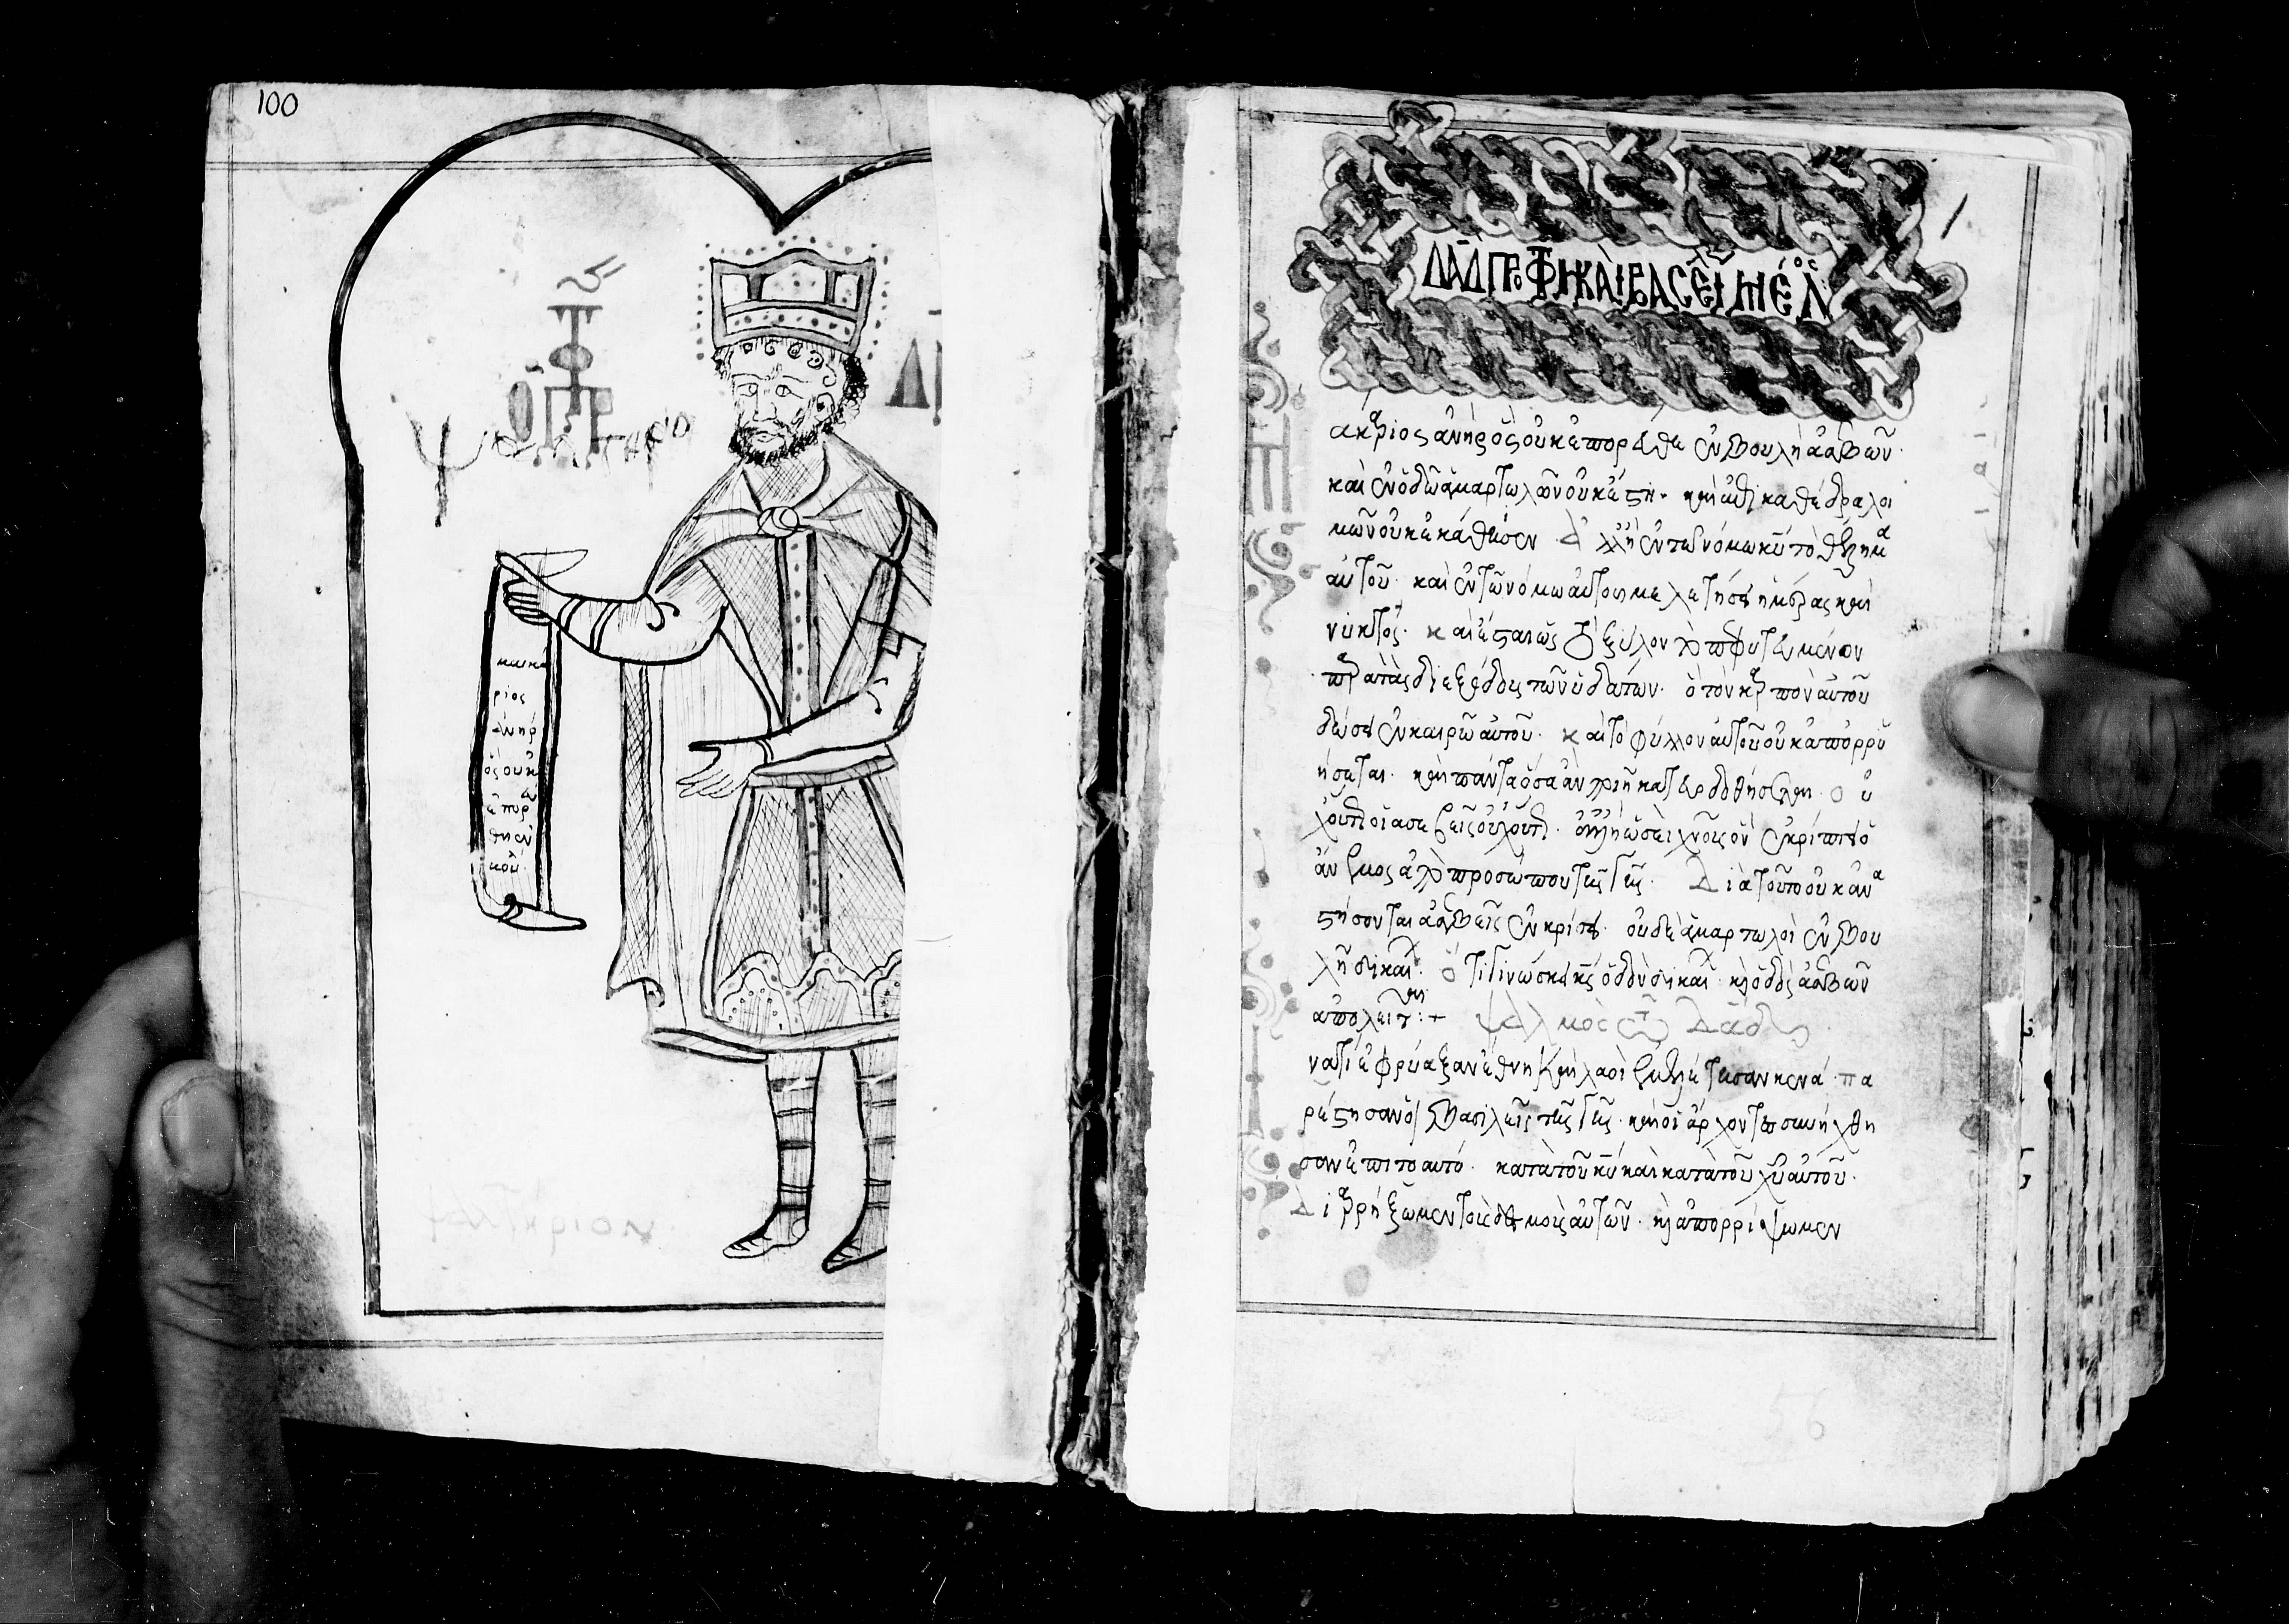 100
ὁ πρφτ
Δα
μακα
ριος
ἀνήρ
ὃς οὐκ
ἐπορεύ
θη ἐν
Ψαλτήριον
ΔΑΔ ΠΡΟΦΗ ΚΑῚ ΒΑΣΕΙ ΜΕΛΟς
ακάριος ἀνὴρ ὃς οὐκ ἐπορεύθη ἐν βουλῆ ἀσεβῶν·
καὶ ἐν ὁδῶ ἁμαρτωλῶν οὐκ ἔστη· καὶ ἐπὶ καθέδρα λοι
μῶν οὐκ ἐκάθισεν Ἀλλ' ἢ ἐν τῶ νόμω κυ τὸ θέλημα
αὐτοῦ· καὶ ἐν τῶ νόμω αὐτοῦ μελετήσει ἡμέρας καὶ
νυκτός· καὶ ἔσται ὡς τὸ ξύλον τὸ πεφυτευμένον
παρὰ τὰς διεξόδους τῶν ὑδάτων· ὃ τὸν καρπὸν αὐτοῦ
δώσει ἐν καιρῶ αὐτοῦ· καὶ τὸ φύλλον αὐτοῦ οὐκ ἀπορρυ
ήσεται· καὶ πάντα ὅσα ἂν ποιῆ κατευοδωθήσεται· οὐ
χ οὕτως οἱ ἀσεβεῖς οὐχ οὕτως· ἀλλ' ἢ ὡσεὶ χνοῦς ὃν ἐκρίπτει ὁ
ἄνεμος ἀπὸ προσώπου τῆς γῆς· Διὰ τοῦτο οὐκ ἀνα
στήσονται ἀσεβεῖς ἐν κρίσει· οὐδὲ ἁμαρτωλοὶ ἐν βου
λῆ δικαίων· ὅτι γινώσκει κς ὁδὸν δικαίων· καὶ ὁδὸς ἀσεβῶν
ἀπολεῖται:+ ψαλμὸς τῶ Δαδ
να τί ἐφρύαξαν ἔθνη καὶ λαοὶ ἐμελέτησαν κενά· πα
ρέστησαν οἱ βασιλεῖς τῆς γῆς· καὶ οἱ ἄρχοντες συνήχθη
σαν ἐπιτοαυτό· κατὰ τοῦ κυ καὶ κατὰ τοῦ χυ αὐτοῦ·
Διαρρήξωμεν τοὺς δεσμοὺς αὐτῶν· καὶ ἀπορρίψωμεν
56